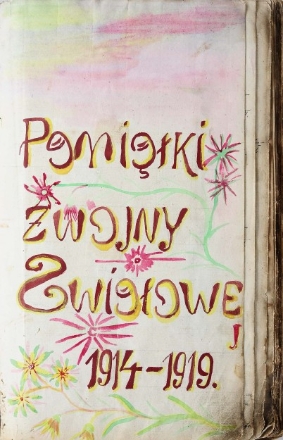 Pamiątki
z wojny
Swiatowe
j
1914-1919.